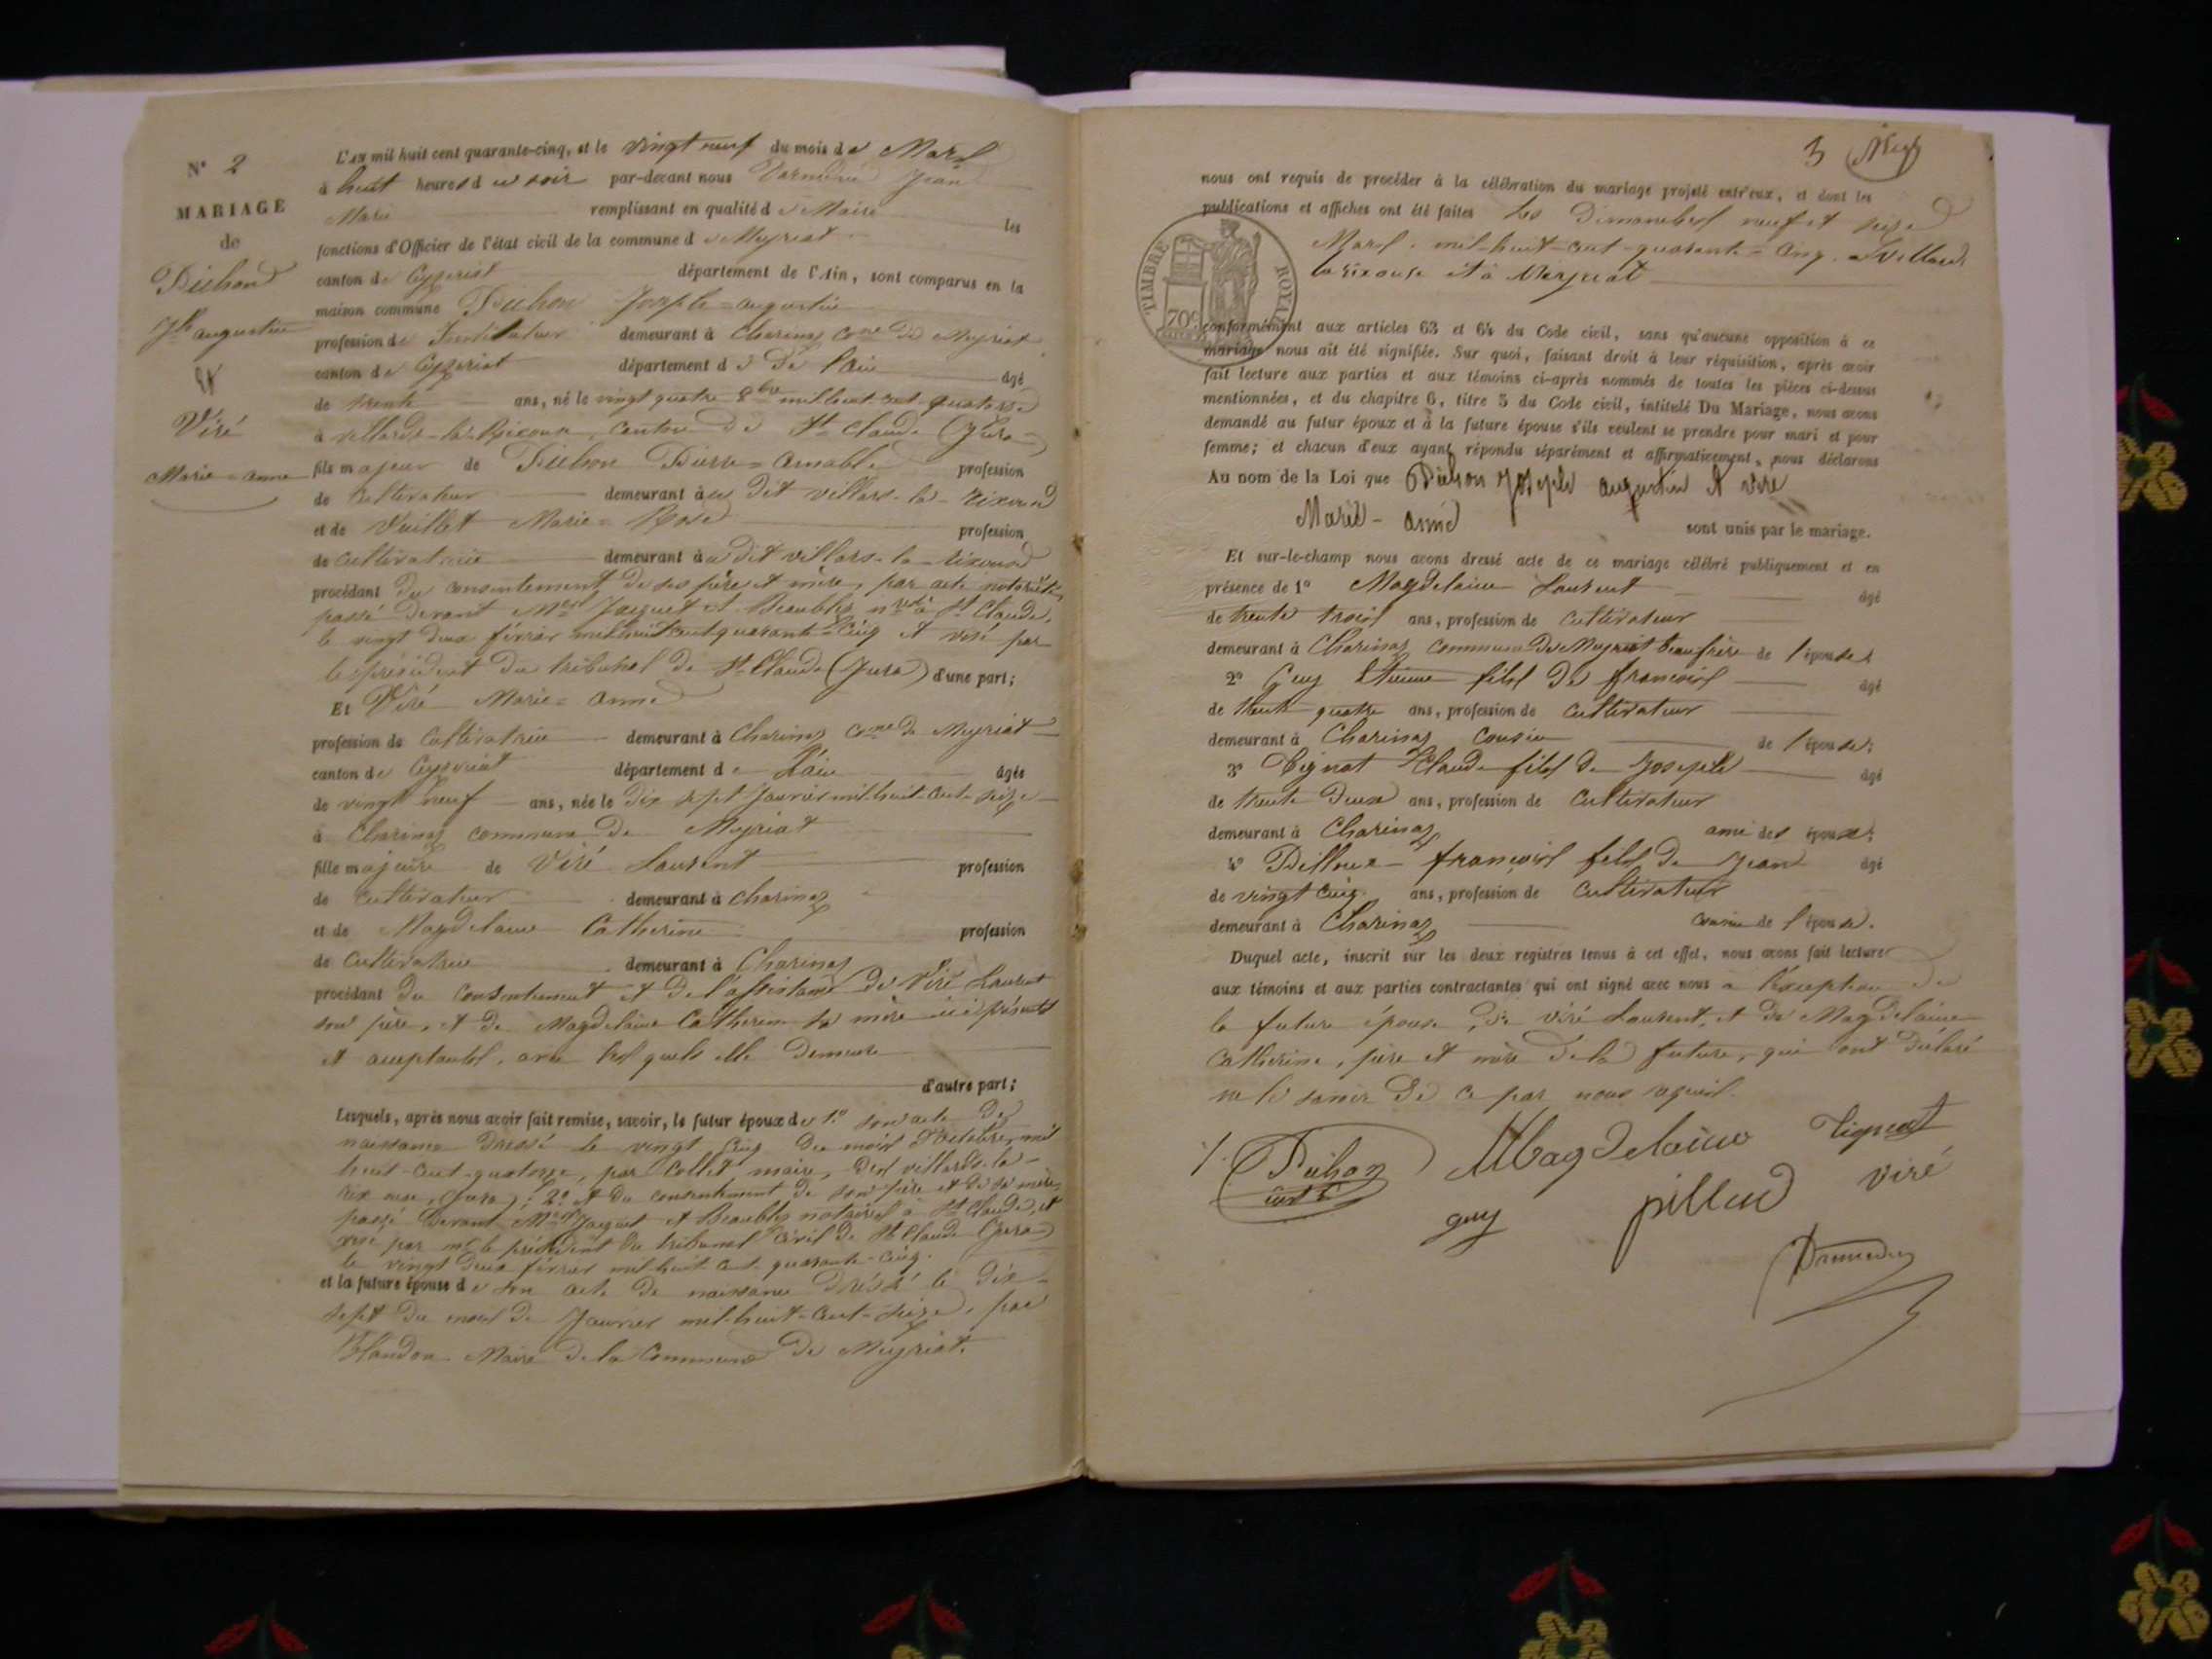 N° 2
MARIAGE
de
Jph augustin
et
Viré
Marie = anne
L'AN mil huit cent quarante-cinq, et le vingt neuf du mois de Mars
à huit heures du soir par-devant nous Jean
Marie remplissant en qualité de Maire les
fonctions d'Officier de l'état civil de la commune de Meyriat
canton de Ceyzeriat département de l'Ain, sont comparus en la
maison commune Joseph = augustin
profession de Instituteur demeurant à Charinaz Cne de Meyriat
canton de Ceyzeriat département de l'ain âgé
de trente ans, né le vingt quatre 8bre mil huit cent quatorze
à villards-la-Rixouse, canton de St Claude (Jura)
fils majeur de Pierre = amable profession
de cultivateur demeurant au dit villars-la-rixouse
et de Vuillet Marie = Rose profession
de cultivatrice demeurant au dit villars-la-rixouse
procédant du consentement de ses père et mère, par acte notarié
passé devant Mes Jacquet et à St Claude,
le vingt deux février mil huit cent quarante = cinq et visé par
le président du tribunal de St Claude (Jura) d'une part;
Et Viré Marie = anne
profession de Cultivatrice demeurant à Charinaz Cne de Meyriat
canton de Ceyzeriat département de L'ain âgée
de vingt neuf ans, née le dix sept Janvier mil-huit-cent-seize
à Charinaz commune de Meyriat
fille majeure de Viré Laurent profession
de cultivateur demeurant à charinaz
et de Magdelaine Catherine profession
de Cultivatrice demeurant à Charinaz
procédant du consentement et de l'assistance de Viré Laurent
son père, et de Magdelaine Catherine sa mère ici présents
et acceptants, avec lesquels elle demeure
d'autre part;
Lesquels, après nous avoir fait remise, savoir, le futur époux de 1.° son acte de
naissance dressé le vingt cinq du mois d'octobre, mil
huit-cent-quatorze, par Collet maire, des villards-la-
rixouse, (Jura); 2.° et du consentement de son père et de sa mère,
passé devant Mes Jacquet et notaires à St Claude, et
visé par le président du tribunal civil de St Claude (Jura)
le vingt deux février mil-huit-cent-quarante-cinq.
et la future épouse de son acte de naissance dressé le dix-
sept du mois de Janvier mil-huit-cent-seize, par
Maire de la Commune de Meyriat.
3
nous ont requis de procéder à la célébration du mariage projeté entr'eux, et dont les
publications et affiches ont été faites les Dimanches neuf et seize
Mars, mil-huit-cent-quarante=cinq, à Villards
la rixouse et à Meyriat
TIMBRE ROYAL
70c
conformément aux articles 63 et 64 du Code civil, sans qu'aucune opposition à ce
mariage nous ait été signifiée. Sur quoi, faisant droit à leur réquisition, après avoir
fait lecture aux parties et aux témoins ci-après nommés de toutes les pièces ci-dessus
mentionnées, et du chapitre 6, titre 5 du Code civil, intitulé Du Mariage, nous avons
demandé au futur époux et à la future épouse s'ils veulent se prendre pour mari et pour
femme; et chacun d'eux ayant répondu séparément et affirmativement, nous déclarons
Au nom de la Loi que Joseph augustin et viré
Marie - anne sont unis par le mariage.
Et sur-le-champ nous avons dressé acte de ce mariage célébré publiquement et en
présence de 1° Magdelaine Laurent âgé
de trente trois ans, profession de cultivateur
demeurant à Charinaz commune de Meyriat beaufrère de l'épouse;
2° Guy Etienne fils de françois âgé
de trente quatre ans, profession de cultivateur
demeurant à Charinaz cousin de l'épouse;
3° Tignat Claude fils de Joseph âgé
de trente deux ans, profession de cultivateur
demeurant à Charinaz ami des époux;
4° françois fils de Jean âgé
de vingt cinq ans, profession de cultivateur
demeurant à Charinaz cousin de l'épouse.
Duquel acte, inscrit sur les deux registres tenus à cet effet, nous avons fait lecture
aux témoins et aux parties contractantes qui ont signé avec nous à l'exception de
la future épouse, de viré Laurent, et de Magdelaine
Catherine, père et mère de la future, qui ont déclaré
ne le savoir de ce par nous requis.
Magdelaine Tignat
guy pilloud viré